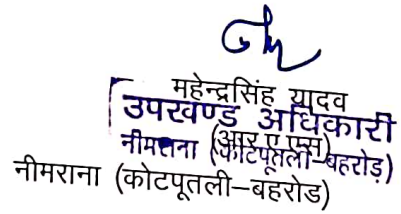 महेन्द्रसिंह यादव
उपखण्ड अधिकारी
(आर.ए.एस)
नीमराना (कोटपूतली–बहरोड़)
नीमराना (कोटपूतली–बहरोड)